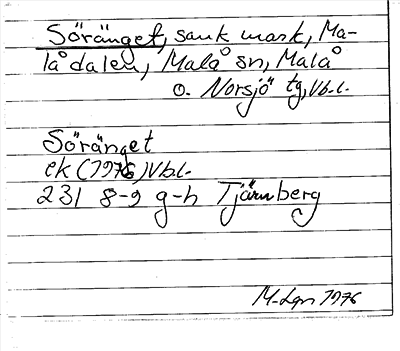 Söränget, sank mark, Ma-
lådalen, Malå sn, Malå
o. Norsjö tg, Vb.l.
Söränget
ek (1976) Vb.l.
231 8-9 g-h Tjärnberg
M-Lgn 1976